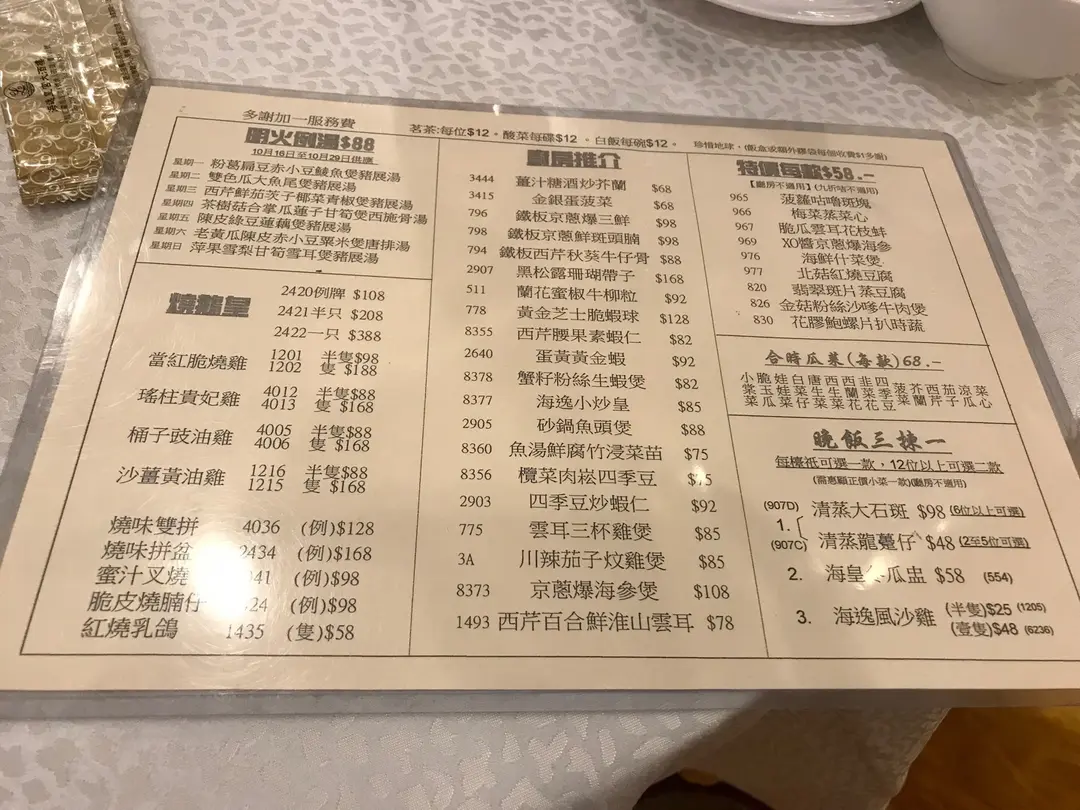 多謝加一服務費
茗茶:每位$12。酸菜每碟$12 。白飯每碗$12。
珍惜地球,(飯盒或額外膠袋每個收費$1多謝)
明火例湯$88
10月16日至10月29日供應
星期一 粉葛扁豆赤小豆鯪魚煲豬展湯
星期二 雙色瓜大魚尾煲豬展湯
星期三 西芹鮮茄茨子椰菜青椒煲豬展湯
星期四 茶樹菇合掌瓜蓮子甘筍煲西施骨湯
星期五 陳皮綠豆蓮藕煲豬展湯
星期六 老黃瓜陳皮赤小豆粟米煲唐排湯
星期日 萍果雪梨甘筍雪耳煲豬展湯
燒鵝皇
2420例牌 $108
2421半只 $208
2422一只 $388
當紅脆燒雞 1201 半隻$98
1202 隻 $188
瑤柱貴妃雞 4012 半隻$88
4013 隻 $168
桶子豉油雞 4005 半隻$88
4006 隻 $168
沙薑黃油雞 1216 半隻$88
1215 隻 $168
燒味雙拼 4036 (例)$128
燒味拼盆 2434 (例)$168
蜜汁叉燒 41 (例)$98
脆皮燒腩仔 24 (例)$98
紅燒乳鴿 1435 (隻)$58
皇房推介
3444 薑汁糖酒炒芥蘭 $68
3415 金銀蛋菠菜 $68
796 鐵板京蔥爆三鮮 $98
798 鐵板京蔥鮮斑頭腩 $98
794 鐵板西芹秋葵牛仔骨 $88
2907 黑松露珊瑚帶子 $168
511 蘭花蜜椒牛柳粒 $92
778 黃金芝士脆蝦球 $128
8355 西芹腰果素蝦仁 $82
2640 蛋黃黃金蝦 $92
8378 蟹籽粉絲生蝦煲 $82
8377 海逸小炒皇 $85
2905 砂鍋魚頭煲 $88
8360 魚湯鮮腐竹浸菜苗 $75
8356 欖菜肉崧四季豆 $75
2903 四季豆炒蝦仁 $92
775 雲耳三杯雞煲 $85
3A 川辣茄子炆雞煲 $85
8373 京蔥爆海參煲 $108
1493 西芹百合鮮淮山雲耳 $78
特價每款$58.-
【廳房不適用】(九折咭不適用)
965 菠蘿咕嚕斑塊
966 梅菜蒸菜心
967 脆瓜雲耳花枝蚌
969 XO醬京蔥爆海參
976 海鮮什菜煲
977 北菇紅燒豆腐
820 翡翠斑片蒸豆腐
826 金菇粉絲沙嗲牛肉煲
830 花膠鮑螺片扒時蔬
合時瓜菜(每款)68.-
小脆娃白唐西西韭四菠芥西茄涼菜
棠玉娃菜生生蘭菜季菜蘭芹子瓜心
菜瓜菜仔菜菜花花豆
晚飯三揀一
每檯祇可選一款,12位以上可選二款
(需惠顧正價小菜一款)(廳房不適用)
(907D) 清蒸大石斑 $98 (6位以上可選)
1.
(907C) 清蒸龍躉仔 $48 (2至5位可選)
2. 海皇冬瓜盅 $58 (554)
3. 海逸風沙雞 (半隻)$25 (1205)
(壹隻)$48 (6236)